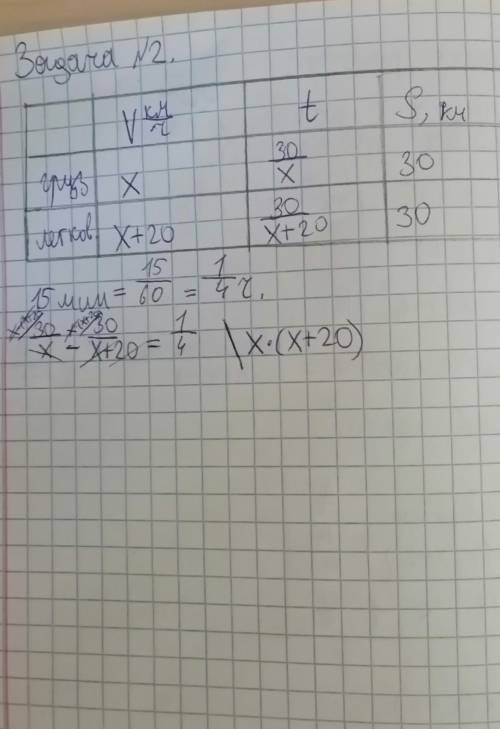 Задача №2.
V км/ч t S, км
груз x 30/x 30
легков x+20 30/x+20 30
15 мин = 15/60 = 1/4 ч.
30/x - 30/x+20 = 1/4 \ x·(x+20)